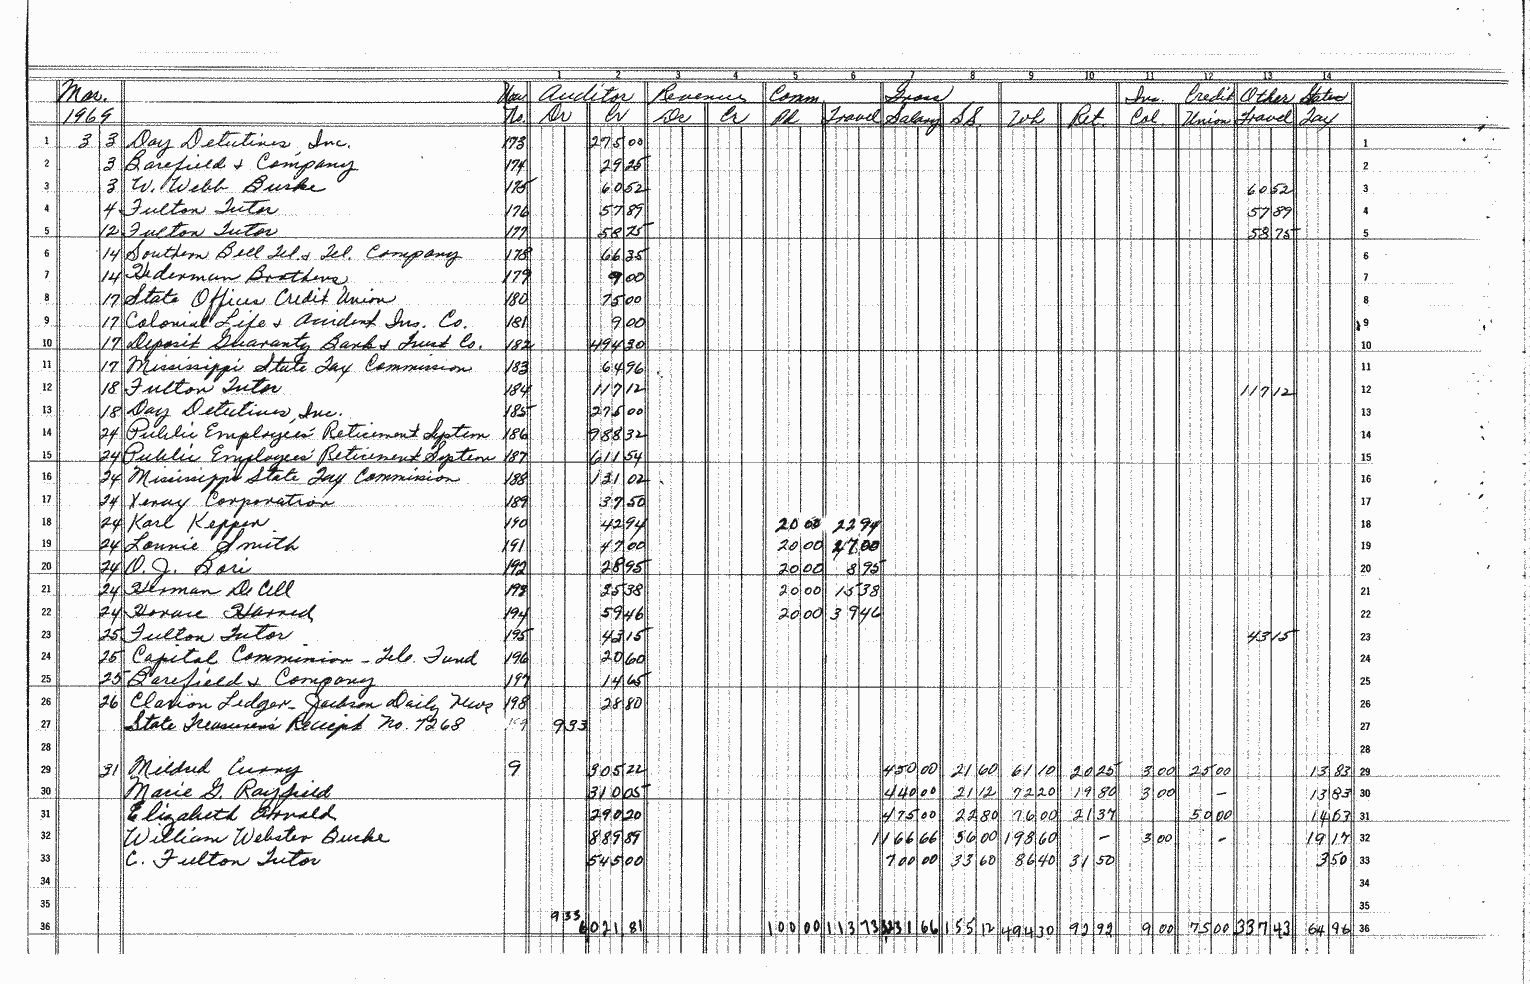 1 2 3 4 5 6 7 8 9 10 11 12 13 14
Mar. Auditor Revenue Comm Gross Ins. Credit Other State
1969 No. Dr Cr Dr Cr Pd Travel Salary S.S. Wh Ret. Col. Union Travel Tax
1 3 3 Day Detectives, Inc. 173 275 00 1
2 3 Barefield & Company 174 29 25 2
3 3 W. Webb Burke 175 60 52 60 52 3
4 4 Fulton Tutor 176 57 89 57 89 4
5 12 Fulton Tutor 177 58 75 58 75 5
6 14 Southern Bell Tel. & Tel. Company 178 66 35 6
7 14 Hederman Brothers 179 9 00 7
8 17 State Offices Credit Union 180 75 00 8
9 17 Colonial Life & Accident Ins. Co. 181 9 00 9
10 17 Deposit Guaranty Bank & Trust Co. 182 494 30 10
11 17 Mississippi State Tax Commission 183 64 96 11
12 18 Fulton Tutor 184 117 12 117 12 12
13 18 Day Detectives, Inc. 185 275 00 13
14 24 Public Employees' Retirement System 186 988 32 14
15 24 Public Employees' Retirement System 187 611 54 15
16 24 Mississippi State Tax Commission 188 131 02 16
17 24 Xerox Corporation 189 37 50 17
18 24 Karl Kepper 190 42 94 20 00 22 94 18
19 24 Lonnie Smith 191 47 00 20 00 27 00 19
20 24 O. J. Bori 192 28 95 20 00 8 95 20
21 24 Herman DeCell 193 35 38 20 00 15 38 21
22 24 Horace Harned 194 59 46 20 00 39 46 22
23 25 Fulton Tutor 195 43 15 43 15 23
24 25 Capital Commission - Tele. Fund 196 20 60 24
25 25 Barefield & Company 197 14 65 25
26 26 Clarion Ledger - Jackson Daily News 198 28 80 26
27 State Treasurer's Receipt No. 7268 199 9 33 27
28 28
29 31 Mildred Curry 9 305 22 450 00 21 60 61 10 20 25 3 00 25 00 13 83 29
30 Marie G. Rayfield 310 05 440 00 21 12 72 20 19 80 3 00 - 13 83 30
31 Elizabeth Arnold 290 20 475 00 22 80 76 00 21 37 50 00 14 63 31
32 William Webster Burke 889 89 1166 66 56 00 198 60 - 3 00 - 19 17 32
33 C. Fulton Tutor 545 00 700 00 33 60 86 40 31 50 3 50 33
34 34
35 9 33 35
36 6021 81 100 00 113 73 3231 66 155 12 494 30 92 92 9 00 75 00 337 43 64 96 36